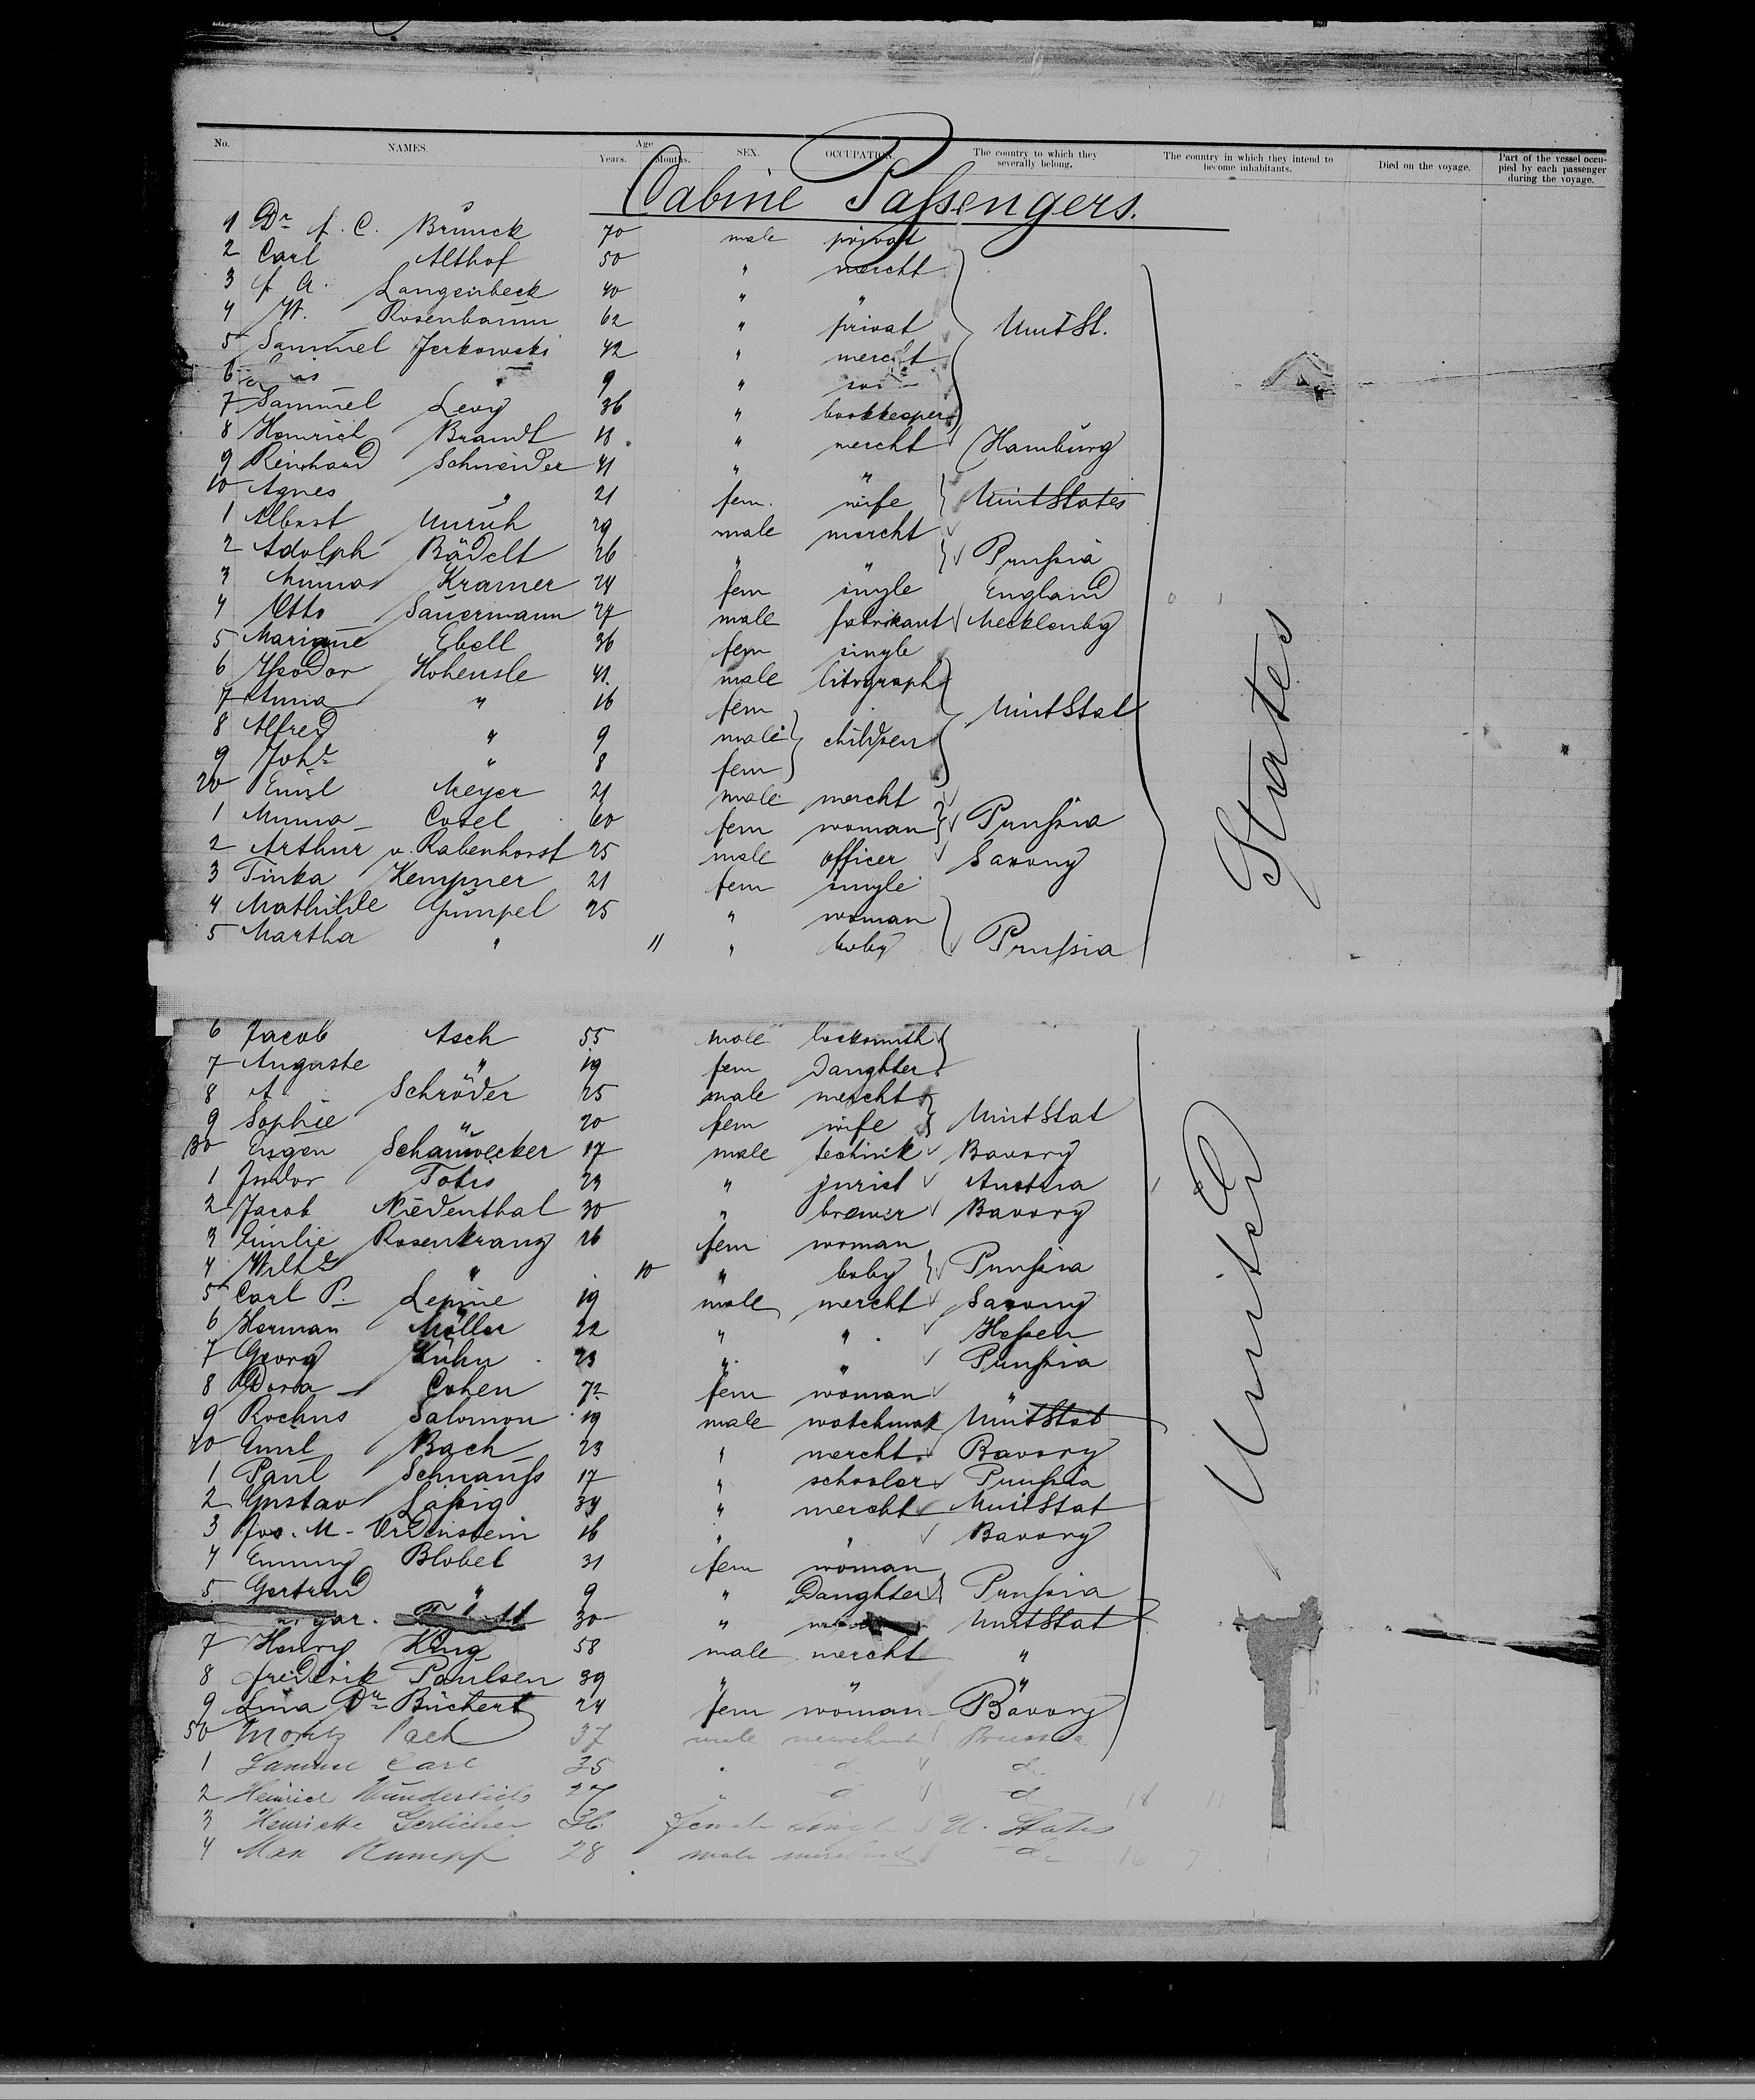 No. NAMES. Age Years. Months. SEX. OCCUPATION. The country to which they severally belong. The country in which they intend to become inhabitants. Died on the voyage. Part of the vessel occupied by each passenger during the voyage.
Cabine Passengers.
1 Dr. f. C. Brunck 70 male privat
2 Carl Althof 50 " mercht
3 f. A. Langenbeck 40 " "
4 W. Rosenbaum 62 " privat Unit St.
5 Samuel Jerkowski 42 " mercht
6 " 9 " son
7 Samuel Levy 36 " bookkeeper
8 Heinrich Brandt 18 " mercht Hamburg
9 Reinhard Schneider 41 " "
10 Agnes " 21 fem. wife Unit States
1 Albert Unruh 29 male mercht
2 Adolph Bädelt 26 " " Prussia
3 Minna Kramer 24 fem single England
4 Otto Sauermann 27 male fabrikant Mecklenbg
5 Mariane Ebell 36 fem single
6 Isodor Hohensle 41 male litograph
7 Anna " 16 fem Unit Stat
8 Alfred " 9 male children
9 Johe " 8 fem
20 Emil Meyer 21 male mercht
1 Minna Cosel 60 fem woman Prussia
2 Arthur v. Rabenhorst 25 male officer Saxony
3 Tinka Kempner 21 fem single
4 Mathilde Gumpel 25 " woman
5 Martha " 11 " baby Prussia
6 Jacob Asch 55 male locksmith
7 Auguste " 19 fem Daughter
8 A. Schröder 25 male mercht
9 Sophie " 20 fem wife Unit Stat
30 Eugen Schauwecker 17 male technik Bavary
1 Isidor Fotis 23 " jurist Austria
2 Jacob Niedenthal 30 " brewer Bavary
3 Emilie Rosenkranz 26 fem woman
4 Wilhe " 10 " baby Prussia
5 Carl P. Lepine 19 male mercht Saxony
6 Herman Möller 22 " " Hessen
7 Georg Kühn 23 " " Prussia
8 Dora Cohen 72 fem woman "
9 Rochus Salomon 19 male watchmak Unit Stat
40 Emil Bach 23 " mercht Bavary
1 Paul Schnauss 17 " schooler Prussia
2 Gustav Lässig 34 " mercht Unit Stat
3 Jos. M. Ordenstein 16 " " Bavary
4 Emmy Blobel 31 fem woman
5 Gertrud " 9 " Daughter Prussia
gar. 30 " Unit Stat
7 Henry King 58 male mercht "
8 frederik Paulsen 39 " " "
9 Lina Dr. Büchert 24 fem woman Bavary
50 Moritz Pach 37 male merchant Prussia
1 Samuel Carl 35 " do do
2 Heinrich Wunderlich 27 " d d 18 11
3 Henriette Gerlicher 36 female Single U. States
4 Max Rumpf 28 male merchant do 16 7
United States